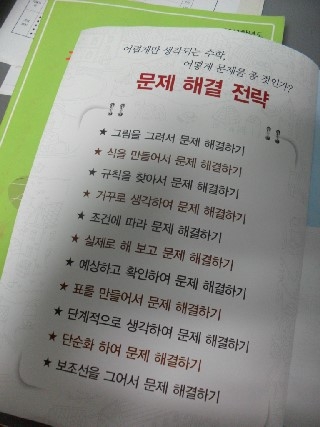 어렵게만 생각되는 수학,
어떻게 문제를 풀 것인가?
문제 해결 전략
★ 그림을 그려서 문제 해결하기
★ 식을 만들어서 문제 해결하기
★ 규칙을 찾아서 문제 해결하기
★ 거꾸로 생각하여 문제 해결하기
★ 조건에 따라 문제 해결하기
★ 실제로 해 보고 문제 해결하기
★ 예상하고 확인하여 문제 해결하기
★ 표를 만들어서 문제 해결하기
★ 단계적으로 생각하여 문제 해결하기
★ 단순화 하여 문제 해결하기
★ 보조선을 그어서 문제 해결하기